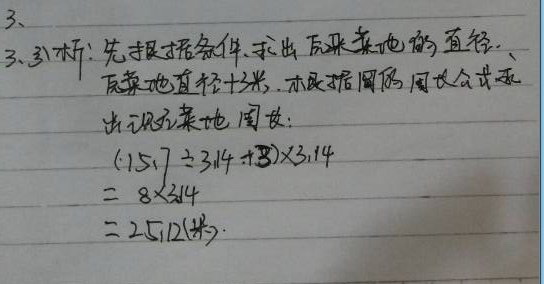 3、
3、分析:先根据条件、求出原来菜地的直径、
原菜地直径+3米,根据圆的周长公式求
出现在菜地周长:
(15.7÷3.14+3)×3.14
= 8×3.14
= 25.12(米).